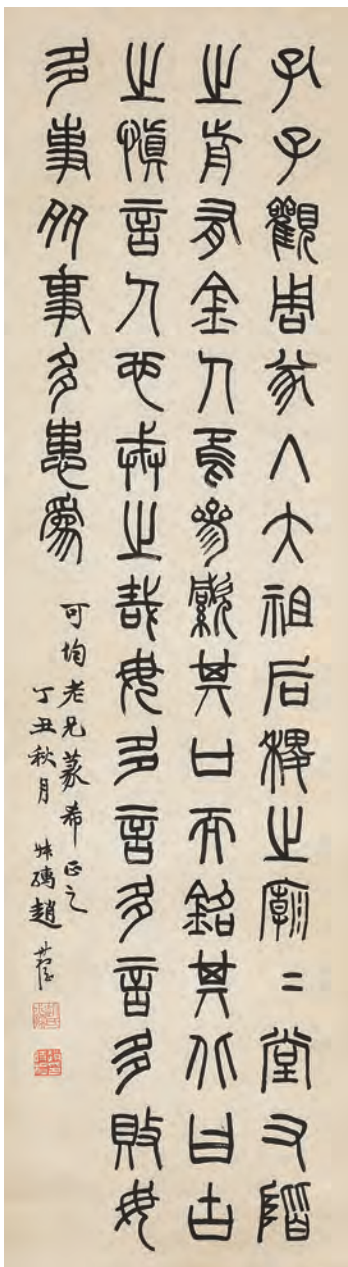 孔子觀周㒸入大祖后稷之廟二堂又階
之前有金人焉參緘其口而銘其北曰古
之慎言人也戒之哉毋多言多言多敗毋
多事多事多患為
可均老兄篆希正之
丁丑秋月 叔孺趙時棡